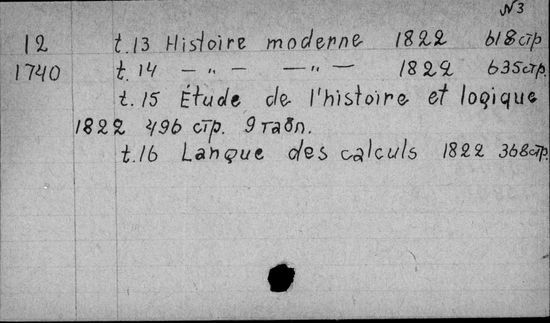 N3
12 t.13 Histoire moderne 1822 618 стр
1740 t.14 — „ — — „ — 1822 635 стр.
t.15 Étude de l'histoire et logique
1822 496 стр. 9 табл.
t.16 Langue des calculs 1822 368 стр.